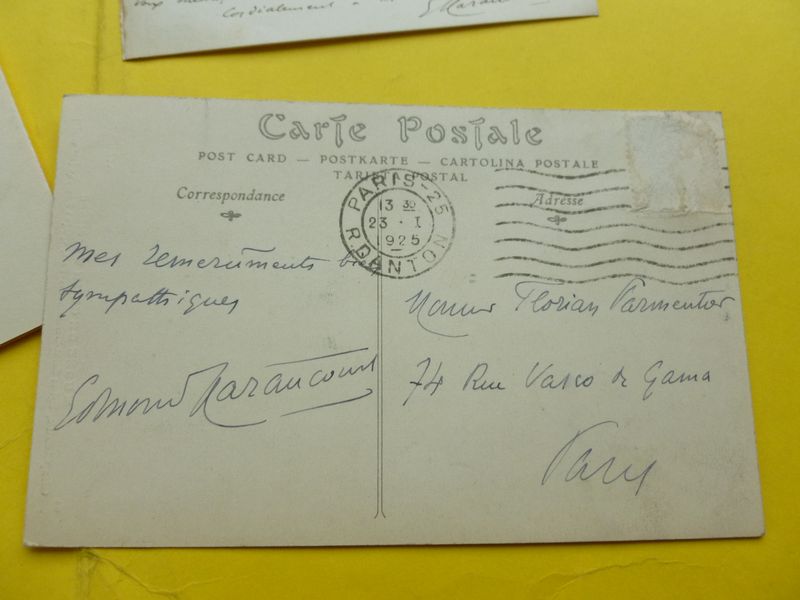 Cordialement
Carte Postale
POST CARD — POSTKARTE — CARTOLINA POSTALE
TARJETA POSTAL
Correspondance
Adresse
PARIS-25
13 30
23 · I
1925
R. DANTON
Mes remerciments bien
sympathiques
Edmond Haraucourt
Monsieur Florian Parmentier
74 Rue Vasco de Gama
Paris